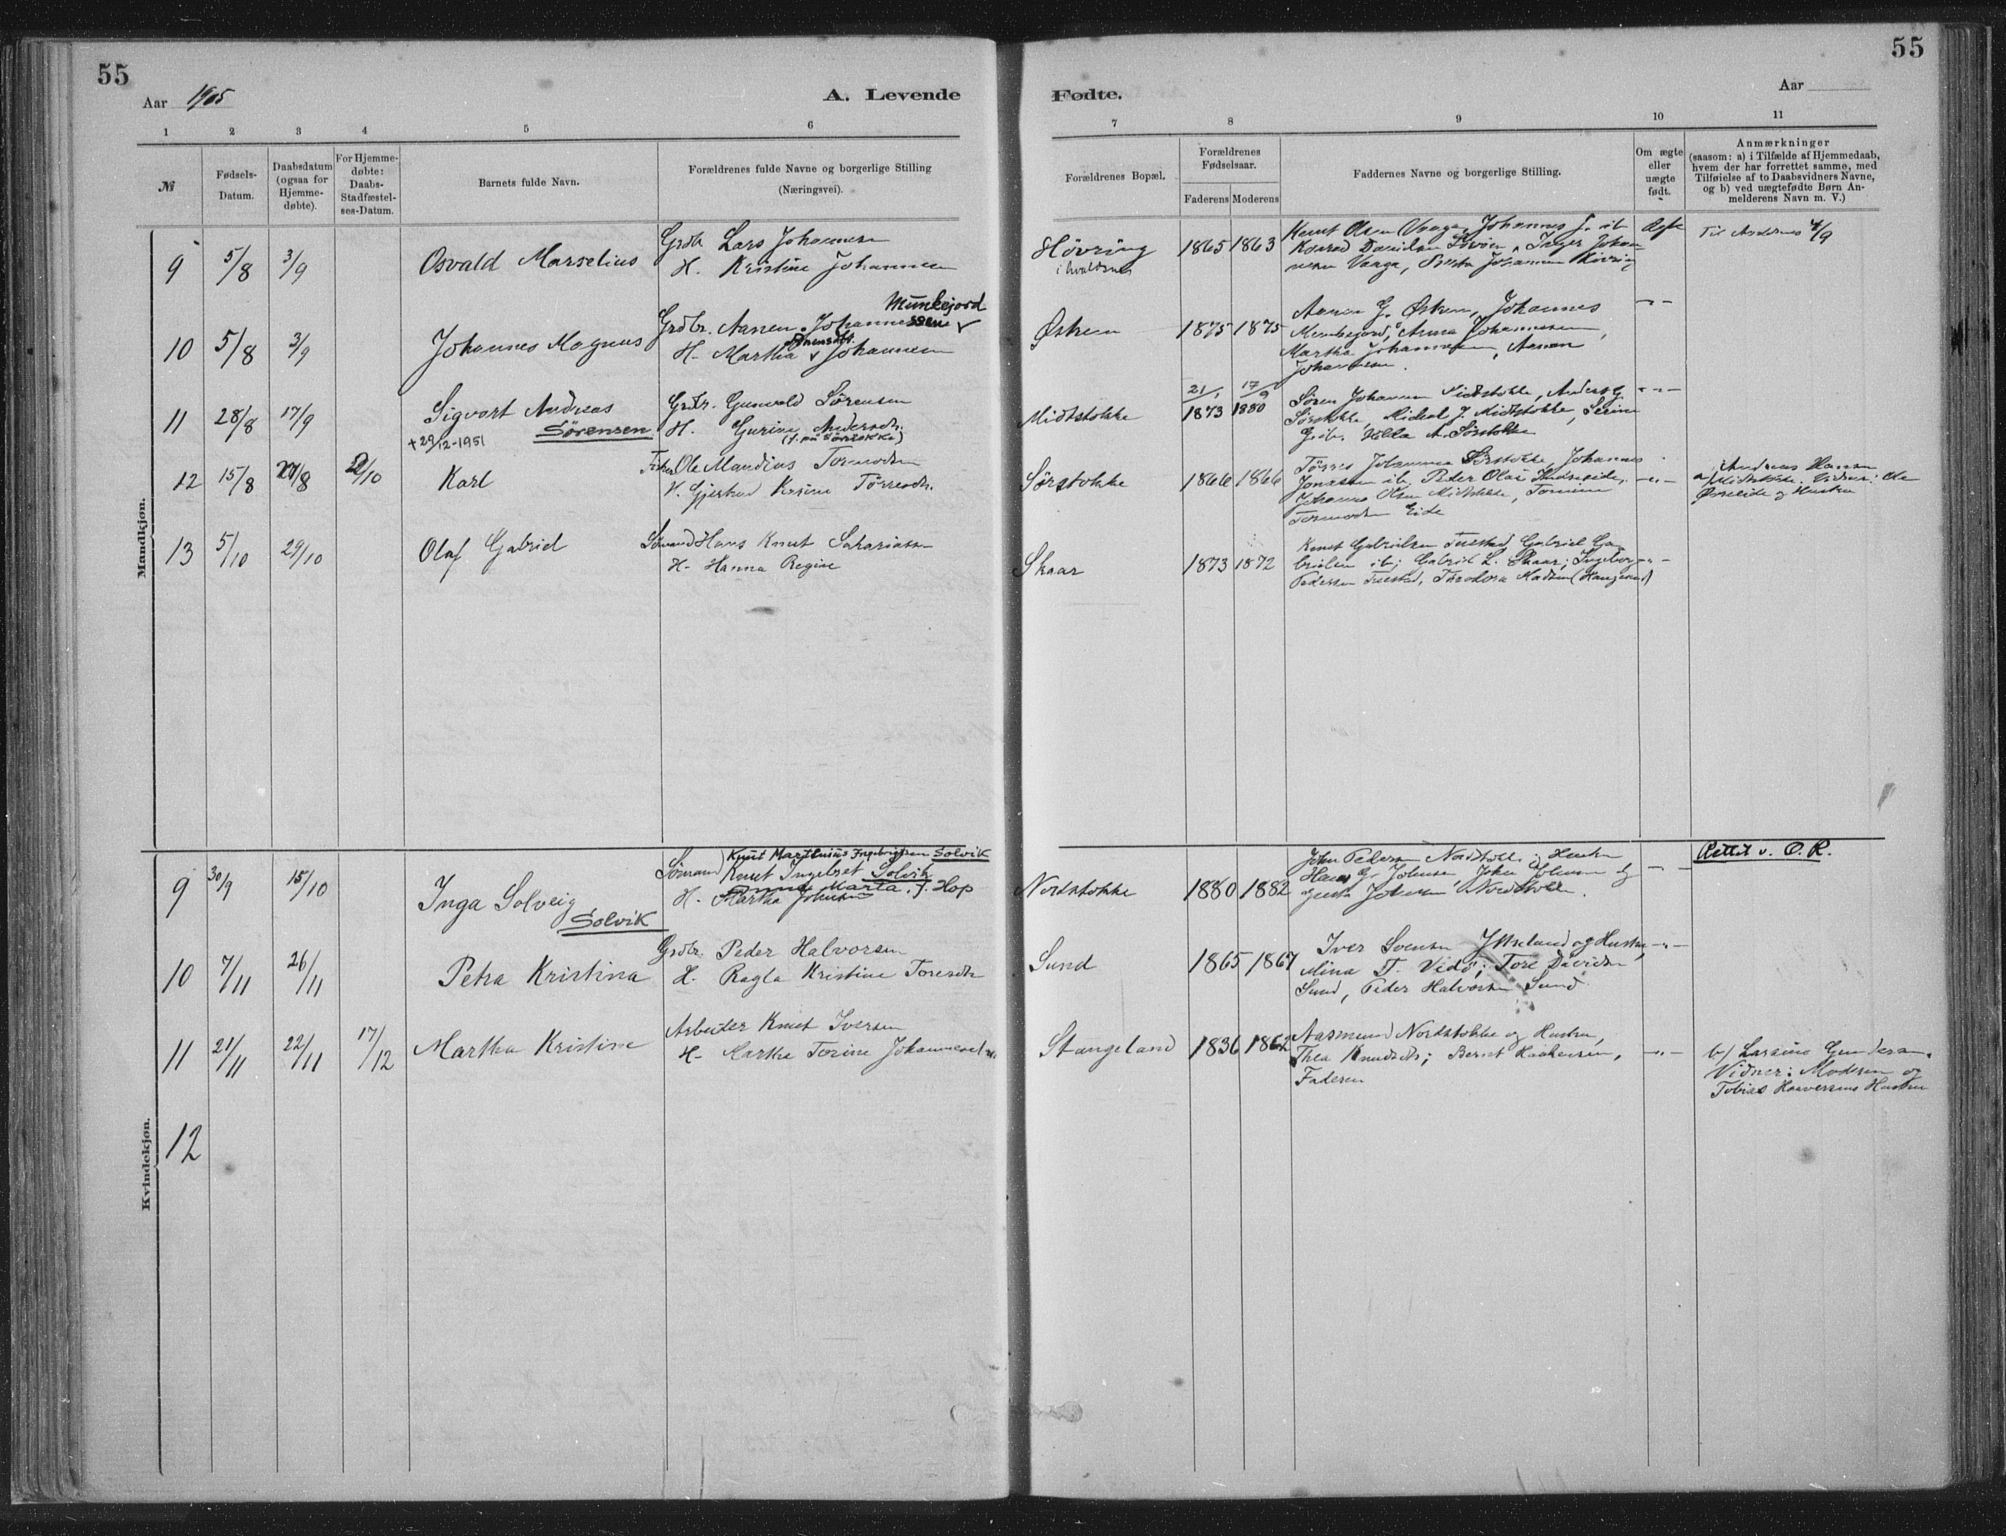 55
55
Aar 1905
A. Levende
Fødte.
Aar
1 2 3 4 5 6
7 8 9 10 11
№
Fødsels-
Datum.
Daabsdatum
(ogsaa for
Hjemme-
døbte).
For Hjemme-
døbte:
Daabs-
Stadfæstel-
ses-Datum.
Barnets fulde Navn.
Forældrenes fulde Navne og borgerlige Stilling
(Næringsvei).
Forældrenes Bopæl.
Forældrenes
Fødselsaar.
Faderens Moderens
Faddernes Navne og borgerlige Stilling.
Om ægte
eller
uægte
født.
Anmærkninger
(saasom: a) i Tilfælde af Hjemmedaab,
hvem der har forrettet samme, med
Tilføielse af to Daabsvidners Navne,
og b) ved uægtefødte Børn An-
melderens Navn m. V.)
Mandkjøn.
9 5/8 3/9
Osvald Marselius
Grdbr. Lars Johannesen
H. Kristine Johannesen
Høvring
1865 1863
Knut Olsen Vaaga, Johannes J. ib
Vaaga,
Ægte
Til Andernes 4/9
10 5/8 3/9
Johannes Magnus
Munkejord
Grdbr. Aanen Johannessen
H. Martha Johannesen
Østrem
1875 1875
Aanen G. Østrem, Johannes
Munkejord, Anna Johannesen,
Martha Johannesen, Aanen
Johannesen.
-"-
11 28/8 17/9
Sigvart Andreas
Sørensen
+29/12-1951
Grdbr. Gunvald Sørensen
H. Gurine Andersdtr.
Midtstokke
21/1 17/9
1873 1880
Søren Johannesen Midtstokke, Anders G.
Sørstokke, Mikal J. Midtstokke, Serine
G. ib. A. Sørstokke
-"-
12 15/8 27/8 2/10
Karl
Ole Mandius Tormodsen
H. Gjertrud Karine Tørresdtr.
Sørstokke
1866 1866
Tørres Johannesen Sørstokke, Johannes
Jonassen ib, Peder Olai
Johannes Olsen Midtstokke,
Tormodsen Eide
-"-
Andreas Hansen
a/ Midtstokke. Vidner: Ole
Øvreeide og Hustru
13 5/10 29/10
Olaf Gabriel
Sømand Hans Knut Sakariassen
H. Hanna Regine
Skaar
1873 1872
Knut Gabrielsen Tuestad, Gabriel Ga-
brielsen ib; Gabriel L. Skaar; Ingeborg
Pedersen Tuestad, Theodora Madsen (Haugesund)
-"-
Kvindekjøn.
9 30/9 15/10
Inga Solveig
Solvik
Knut Marthinius Ingebrigtsen Solvik
Sømand Knut Ingebret Solvik
H. Martha Johnsen
Marta, f. Hop
Nordstokke
1880 1882
John Pedersen Nordstokke; Hustru
Hans G. Johnsen, John Johnsen og
Johnsen Nordstokke.
-"-
Rettet v. O. R.
10 7/11 26/11
Petra Kristina
Grdbr. Peder Halvorsen
H. Ragla Kristine Toresdtr
Sund
1865 1867
Iver Svensen Ytreland og Hustru,
Mina T. Vedø; Tore Davidsen
Sund, Peder Halvorsen Sund
-"-
11 21/11 22/11 17/12
Martha Kristine
Arbeider Knut Iversen
H. Martha Torine Johannesdtr
Stangeland
1836 1862
Aasmund Nordstokke og Hustru,
Thea Knudsdtr; Bernt Haakensen,
Faderen
-"-
b/ Larsine Gundersen.
Vidner: Moderen og
Tobias Halvorsens Hustru
12